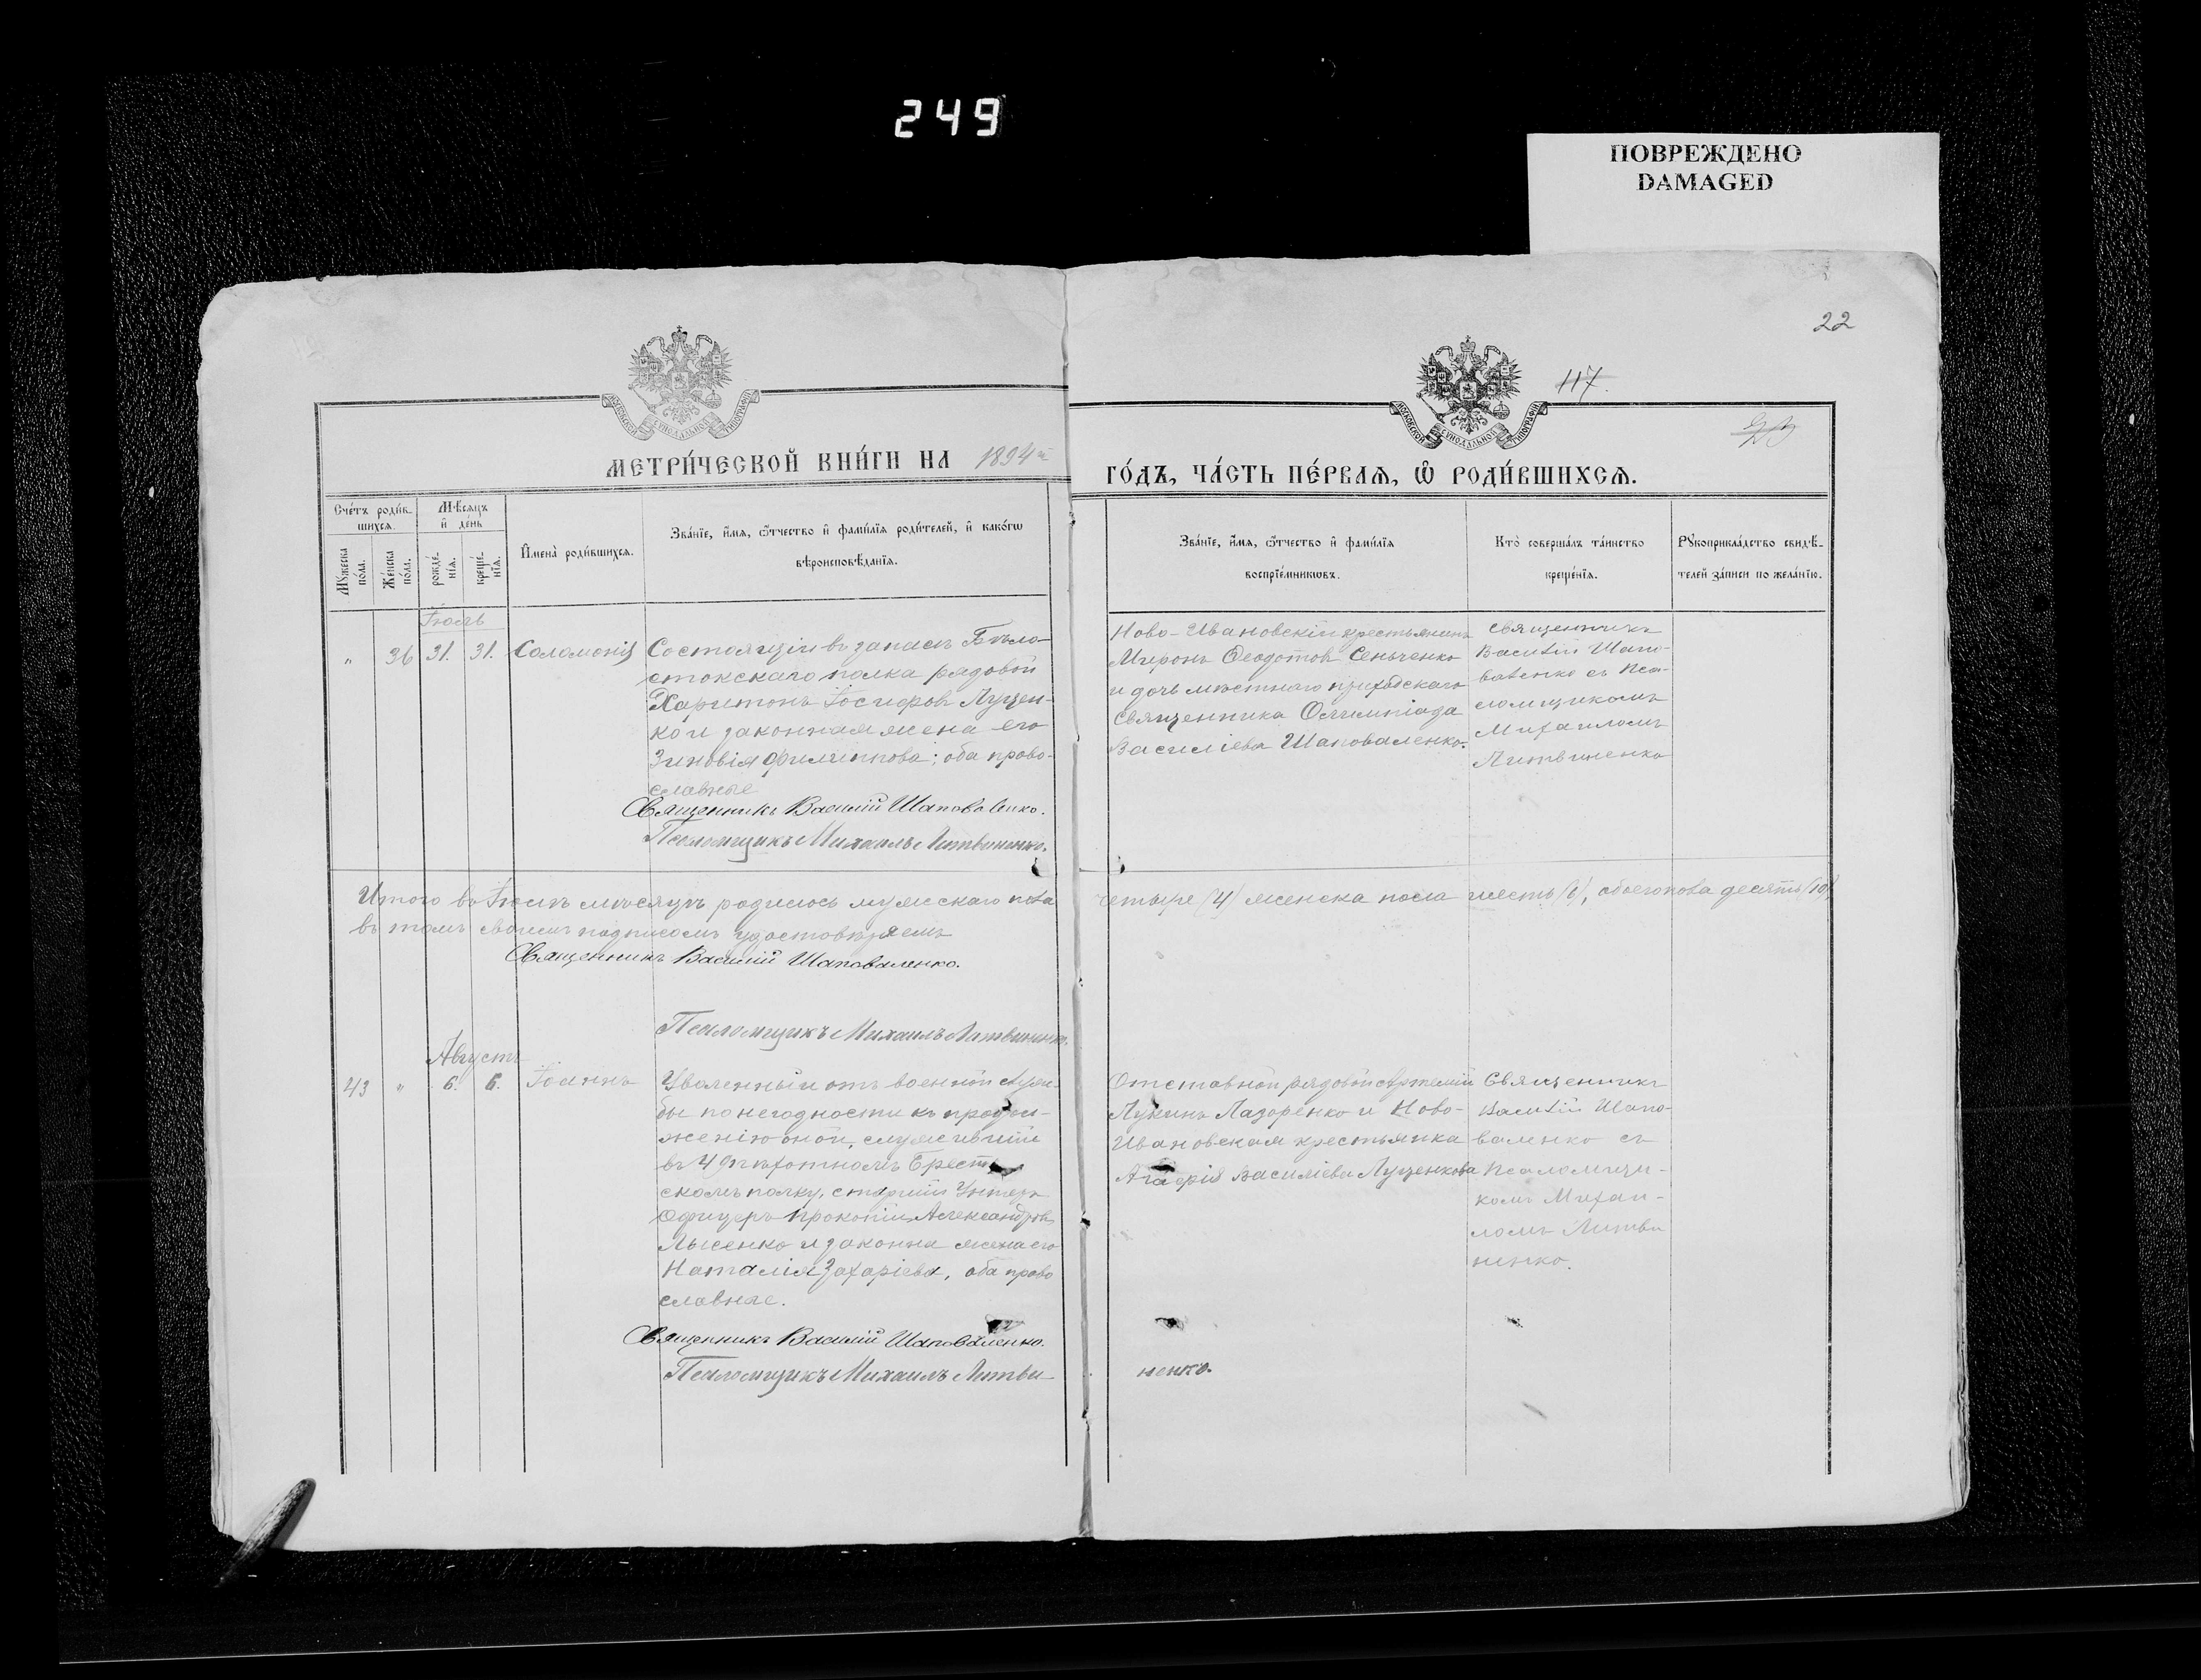 249
ПОВРЕЖДЕНО
DAMAGED
22
117.
МОСКОВСКОЙ СѴНОДАЛЬНОЙ ТИПОГРАФІИ
МОСКОВСКОЙ СѴНОДАЛЬНОЙ ТИПОГРАФІИ
МЕТРИ́ЧЕСКОЙ КНИ́ГИ НА 1894й
ГО́ДЪ, ЧА́СТЬ ПЕ́РВАѦ, Ѽ РОДИ́ВШИХСѦ.
Сче́тъ роди́в-
шихсѧ.
Мѣ́сѧцъ
и҆ де́нь
Мꙋ́жеска
по́ла.
Же́нска
по́ла.
рожде́-
нїѧ.
креще́-
нїѧ.
И҆мена̀ роди́вшихсѧ.
Зва́нїе, и҆́мѧ, ѻ҆́тчество и҆ фами́лїѧ роди́телей, и҆ како́гѡ
вѣроисповѣ́данїѧ.
Зва́нїе, и҆́мѧ, ѻ҆́тчество и҆ фами́лїѧ
воспрїе́мникѡвъ.
Кто̀ соверша́лъ та́инство
креще́нїѧ.
Рꙋкоприкла́дство свидѣ́-
телей за́писи по жела́нїю.
Іюль
" 36 31. 31. Соломонія
Состоящій въ запасѣ Бѣло-
стокскаго полка рядовой
Харитонъ Іосифовъ Луцен-
ко и законная жена его
Зиновія Филиппова; оба право-
славные
Священникъ Василій Шаповаленко.
Псаломщикъ Михаилъ Литвиненко.
Ново-Ивановскій крестьянинъ
Миронъ Ѳеодотовъ Сеньченко
и дочь мѣстнаго приходскаго
священника Олимпіада
Василіева Шаповаленко.
Священникъ
Василій Шапо-
валенко съ Пса-
ломщикомъ
Михаиломъ
Литвиненко
Итого въ Іюлѣ мѣсяцѣ родилось мужскаго пола четыре (4) женска пола шесть (6), обоего пола десять (10),
въ томъ своимъ подписомъ удостовѣряемъ
Священникъ Василій Шаповаленко.
Псаломщикъ Михаилъ Литвиненко.
Августъ
43 " 6. 6. Іоаннъ
Уволенный отъ военной служ-
бы по негодности къ продол-
женію оной, служившій
въ 49 пѣхотномъ Брест-
скомъ полку, старшій Унтеръ
Офицеръ Прокопій Александровъ
Лысенко и законная жена его
Наталія Захаріева, оба право
славные.
Священникъ Василій Шаповаленко.
Псаломщикъ Михаилъ Литви-
ненко.
Отставной рядовой Артемій
Лукинъ Лазоренко и Ново-
Ивановская крестьянка
Агафія Василіева Луценкова
Священникъ
Василій Шапо-
валенко съ
Псаломщи-
комъ Михаи-
ломъ Литви
ненко.